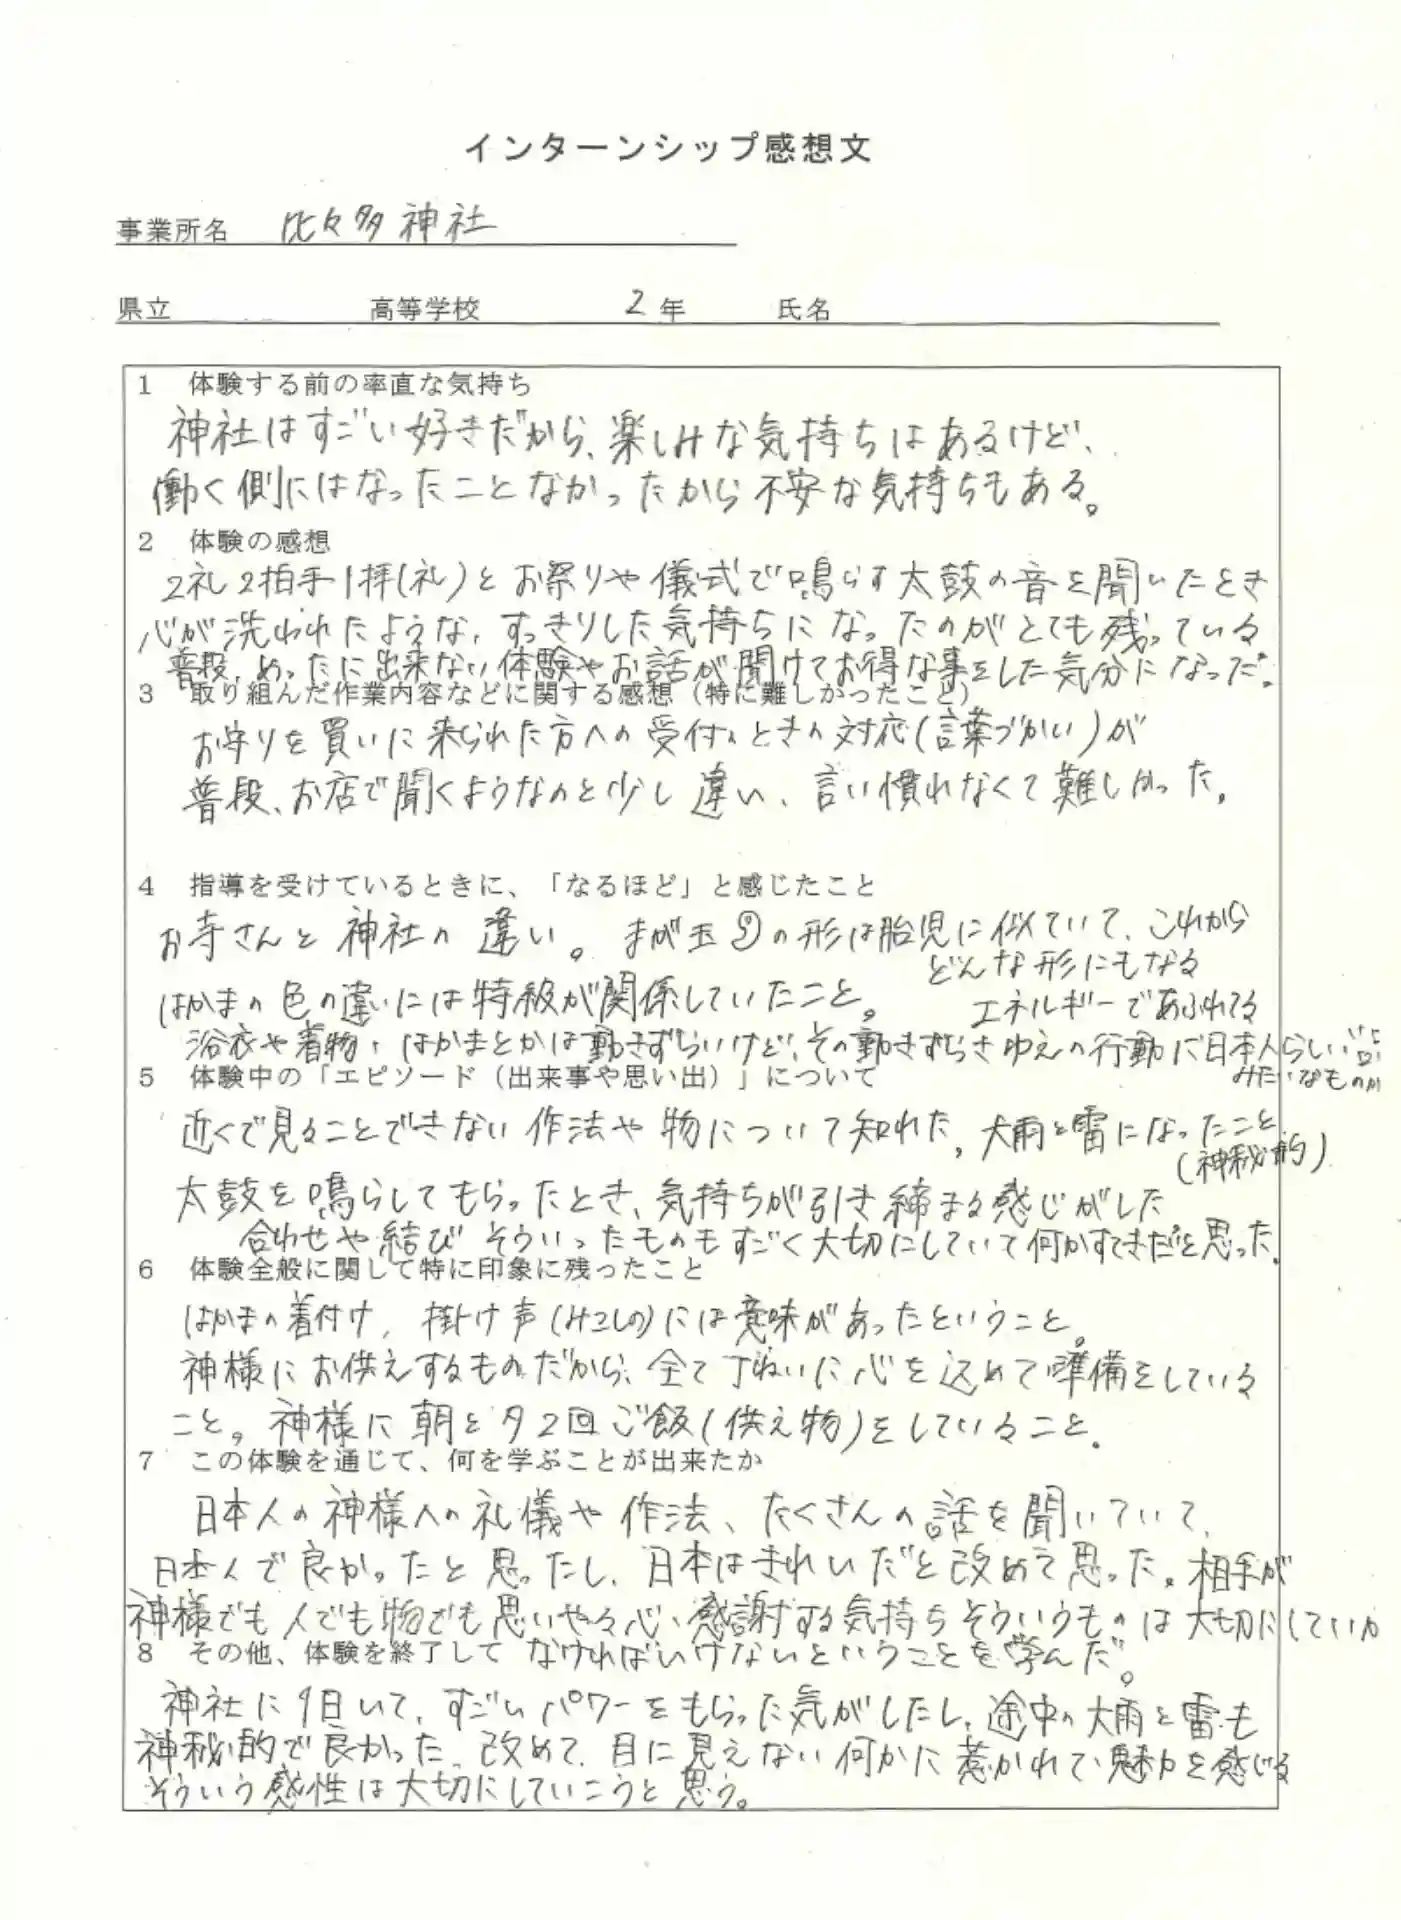 インターンシップ感想文
事業所名 比々多神社
県立 高等学校 2年 氏名
1 体験する前の率直な気持ち
神社はすごい好きだから、楽しみな気持ちはあるけど、
働く側にはなったことなかったから不安な気持ちもある。
2 体験の感想
2礼2拍手1拝(礼)とお祭りや儀式で鳴らす太鼓の音を聞いたとき
心が洗われたような、すっきりした気持ちになったのがとても残っている
普段、めったに出来ない体験やお話が聞けてお得な事をした気分になった。
3 取り組んだ作業内容などに関する感想(特に難しかったこと)
お守りを買いに来られた方への受付のときの対応(言葉づかい)が
普段、お店で聞くようなのと少し違い、言い慣れなくて難しかった。
4 指導を受けているときに、「なるほど」と感じたこと
お寺さんと神社の違い。まが玉の形は胎児に似ていて、これから
どんな形にもなる
はかまの色の違いには特級が関係していたこと。
エネルギーであふれてる
浴衣や着物・はかまとかは動きずらいけど、その動きずらさゆえの行動に日本人らしい
みたいなものが
5 体験中の「エピソード(出来事や思い出)」について
近くで見ることできない作法や物について知れた。大雨と雷になったこと
(神秘的)
太鼓を鳴らしてもらったとき、気持ちが引き締まる感じがした
合わせや結びそういったものもすごく大切にしていて何かすてきだと思った。
6 体験全般に関して特に印象に残ったこと
はかまの着付け、掛け声(みこしの)には意味があったということ。
神様にお供えするものだから、全て丁ねいに心を込めて準備をしている
こと。神様に朝と夕2回ご飯(供え物)をしていること。
7 この体験を通じて、何を学ぶことが出来たか
日本人の神様への礼儀や作法、たくさんの話を聞いていて、
日本人で良かったと思ったし、日本はきれいだと改めて思った。相手が
神様でも人でも物でも思いやる心、感謝する気持ちそういうものは大切にしていか
8 その他、体験を終了して なければいけないということを学んだ。
神社に9日いて、すごいパワーをもらった気がしたし、途中の大雨と雷も
神秘的で良かった。改めて、目に見えない何かに惹かれて魅力を感じる
そういう感性は大切にしていこうと思う。